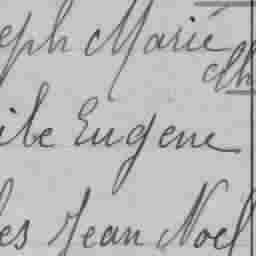 eph Marie
Ch
ile Eugene
les Jean Noel